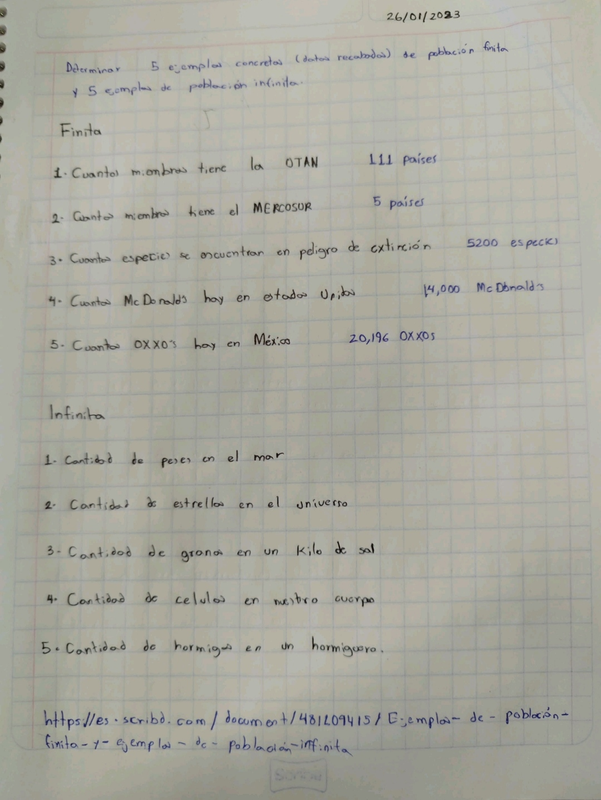 26/01/2023
Determinar 5 ejemplos concretos (datos recabados) de población finita
y 5 ejemplos de población infinita.
Finita
1. Cuantos miembros tiene la OTAN 111 países
2. Cuantos miembros tiene el MERCOSUR 5 países
3. Cuantas especies se encuentran en peligro de extinción 5200 especies
4. Cuantos McDonalds hay en estados Unidos 14,000 McDonalds
5. Cuantos OXXOS hay en México 20,196 OXXOS
Infinita
1. Cantidad de peces en el mar
2. Cantidad de estrellas en el universo
3. Cantidad de granos en un kilo de sal
4. Cantidad de celulas en nuestro cuerpo
5. Cantidad de hormigas en un hormiguero.
https://es.scribd.com/document/481209415/Ejemplos-de-población-
finita-y-ejemplos-de-población-infinita